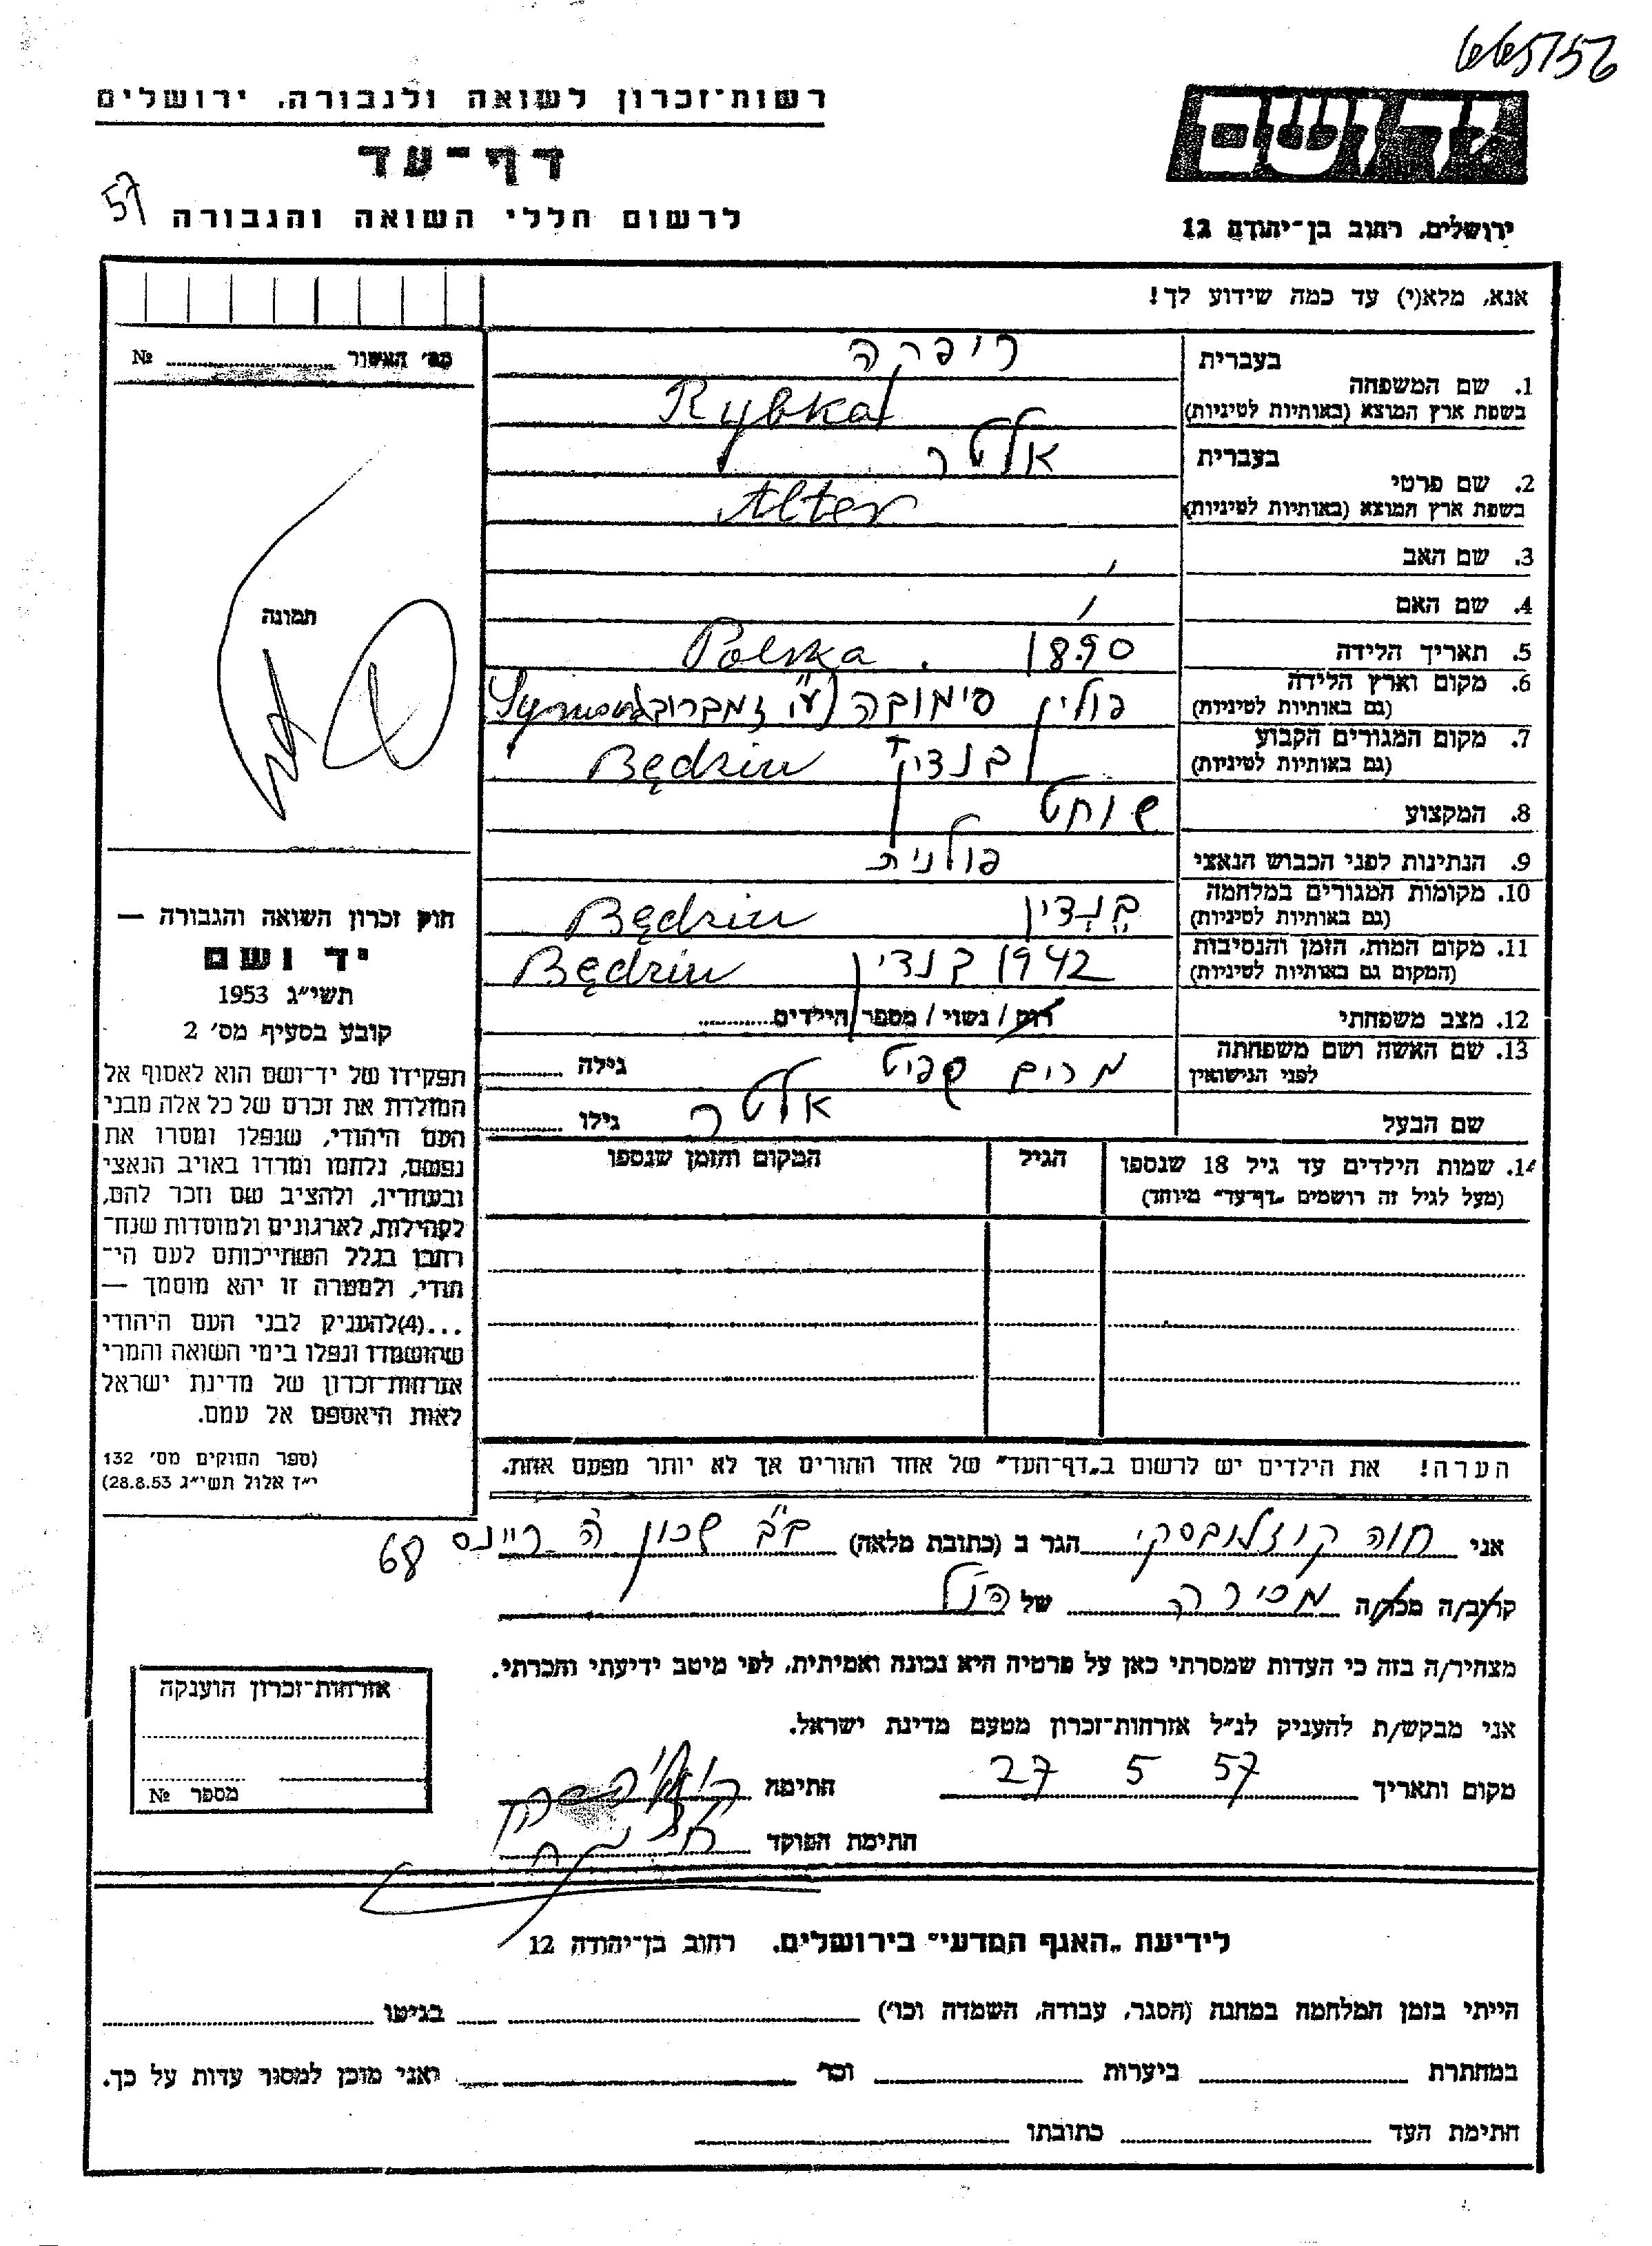 665156
רשות־זכרון לשואה ולגבורה, ירושלים
דף־עד
57
לרשום חללי השואה והגבורה
ידושם
ירושלים, רחוב בן־יהודה 12
אנא, מלא(י) עד כמה שידוע לך!
מס׳ האשור № 
בעברית ריפקה
1. שם המשפחה
בשפת ארץ המוצא (באותיות לטיניות) Rybka
בעברית אלטר
2. שם פרטי
בשפת ארץ המוצא (באותיות לטיניות) Alter
3. שם האב
4. שם האם
5. תאריך הלידה 1890 . Polska
6. מקום וארץ הלידה
(גם באותיות לטיניות) פולין סימובה
7. מקום המגורים הקבוע
(גם באותיות לטיניות) בנדין Będzin
8. המקצוע שוחט
9. הנתינות לפני הכבוש הנאצי פולנית
10. מקומות המגורים במלחמה
(גם באותיות לטיניות) בנדין Będzin
11. מקום המות, הזמן והנסיבות
(המקום גם באותיות לטיניות) 1942 בנדין Będzin
12. מצב משפחתי רווק / נשוי / מספר הילדים
13. שם האשה ושם משפחתה
לפני הנישואין מרים גילה
שם הבעל אלטר גילו
14. שמות הילדים עד גיל 18 שנספו הגיל המקום והזמן שנספו
(מעל לגיל זה רושמים „דף־עד״ מיוחד)
הערה! את הילדים יש לרשום ב„דף־העד״ של אחד ההורים אך לא יותר מפעם אחת.
תמונה
חוק זכרון השואה והגבורה —
יד ושם
תשי״ג 1953
קובע בסעיף מס׳ 2
תפקידו של יד־ושם הוא לאסוף אל
המולדת את זכרם של כל אלה מבני
העם היהודי, שנפלו ומסרו את
נפשם, נלחמו ומרדו באויב הנאצי
ובעוזריו, ולהציב שם וזכר להם,
לקהילות, לארגונים ולמוסדות שנח־
רבו בגלל השתייכותם לעם הי־
הודי, ולמטרה זו יהא מוסמך —
...(4)להעניק לבני העם היהודי
שהושמדו ונפלו בימי השואה והמרי
אזרחות־זכרון של מדינת ישראל
לאות היאספם אל עמם.
(ספר החוקים מס׳ 132
י״ז אלול תשי״ג 28.8.53)
אני חוה קוזלובסקי הגר ב (כתובת מלאה) ב״ב שכון ה 68
קרוב/ה מכר/ה מכירה של הנ״ל
מצהיר/ה בזה כי העדות שמסרתי כאן על פרטיה היא נכונה ואמיתית, לפי מיטב ידיעתי והכרתי.
אני מבקש/ת להעניק לנ״ל אזרחות־זכרון מטעם מדינת ישראל.
מקום ותאריך 27 5 57 חתימה
חתימת הפוקד
אזרחות־זכרון הוענקה
מספר №
לידיעת „האגף המדעי״ בירושלים, רחוב בן־יהודה 12
הייתי בזמן המלחמה במחנה (הסגר, עבודה, השמדה וכו׳) בגיטו
במחתרת ביערות וכו׳ ואני מוכן למסור עדות על כך.
חתימת העד כתובתו